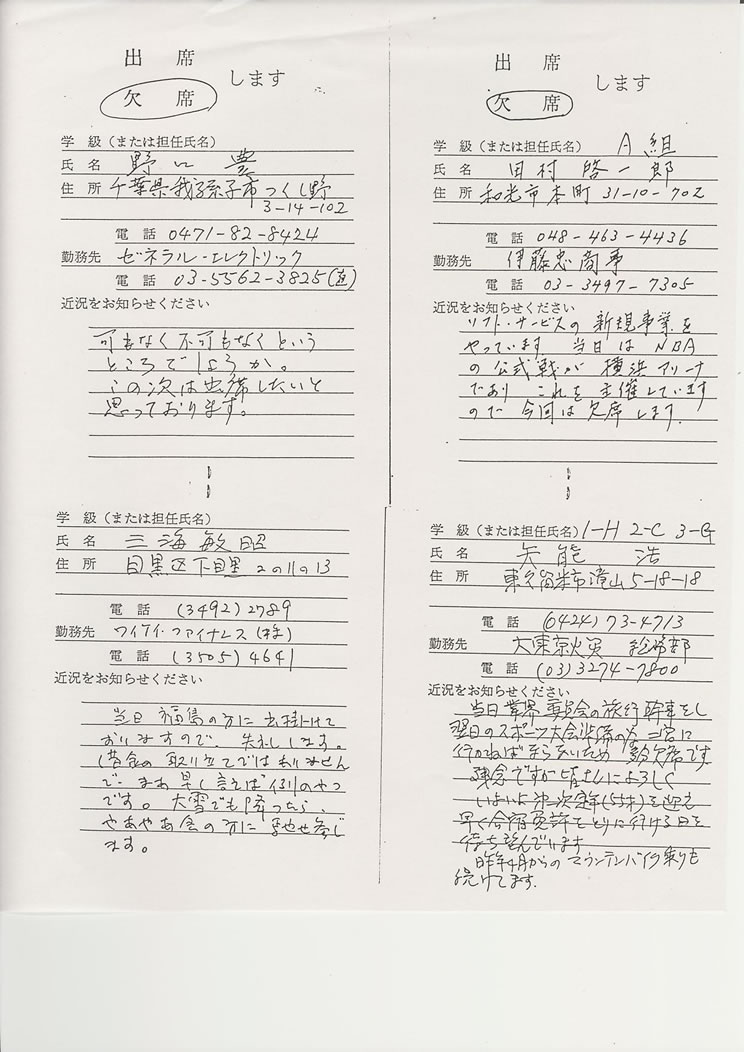 出 席
欠 席
します
学 級（または担任氏名）
氏 名 野口 豊
住 所 千葉県我孫子市つくし野
3-14-102
電 話 0471-82-8424
勤務先 ゼネラル・エレクトリック
電 話 03-5562-3825(直)
近況をお知らせください
可もなく不可もなくという
ところでしょうか。
この次は出席したいと
思っております。
出 席
欠 席
します
学 級（または担任氏名） A組
氏 名 田村 啓一郎
住 所 和光市本町 31-10-702
電 話 048-463-4436
勤務先 伊藤忠商事
電 話 03-3497-7305
近況をお知らせください
ソフト・サービスの 新規事業を
やっています 当日は NBA
の公式戦が 横浜アリーナ
であり これを主催しています
ので 今回は欠席します.
学 級（または担任氏名）
氏 名 三海 敏昭
住 所 目黒区下目黒 2の11の13
電 話 (3492) 2789
勤務先 ワイケイ・ファイナンス (株)
電 話 (3505) 4641
近況をお知らせください
当日 福島の方に出掛けて
おりますので、失礼します。
(借金の取り立てではありません
で、まあ早く言えば例のやつ
です。大雪でも降ったら、
やあやあ会の方に馳せ参じ
ます。
学 級（または担任氏名） 1-H 2-C 3-G
氏 名 矢能 浩
住 所 東久留米市滝山5-18-18
電 話 (0424) 73-4713
勤務先 大東京火災
電 話 (03) 3274-7800
近況をお知らせください
当日業界委員会の旅行幹事をし
翌日のスポーツ大会
行かねばならないため 欠席です
残念ですが皆さんによろしく
いよいよ第二次定年(55才)を迎え
早く
待ち望んでいます
昨年4月からの マウンテンバイク乗りも
続けてます.